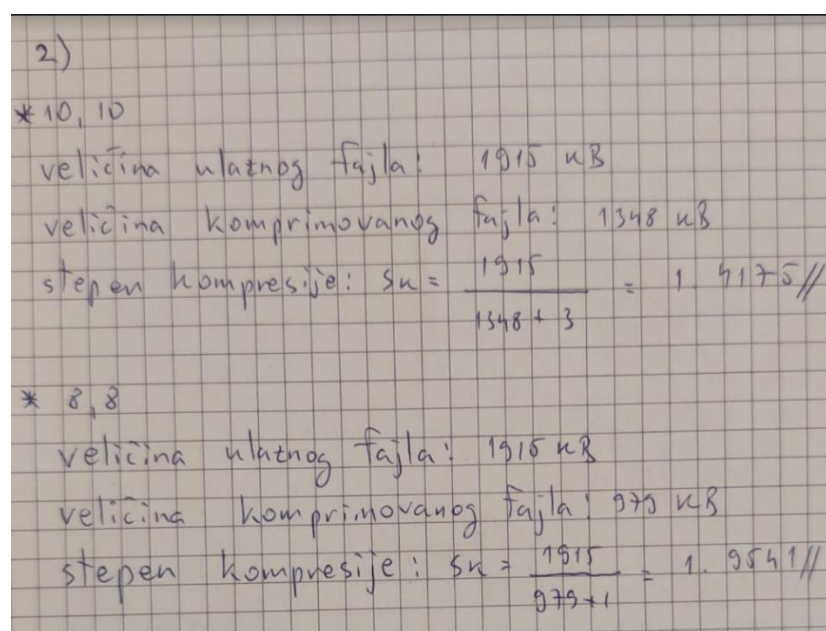 2)
* 10, 10
veličina ulaznog fajla: 1915 kB
veličina komprimovanog fajla: 1348 kB
stepen kompresije: Sk = 1915 / 1348 + 3 = 1.4175//
* 8, 8
veličina ulaznog fajla: 1915 kB
veličina komprimovanog fajla: 979 kB
stepen kompresije: Sk = 1915 / 979+1 = 1.9541//